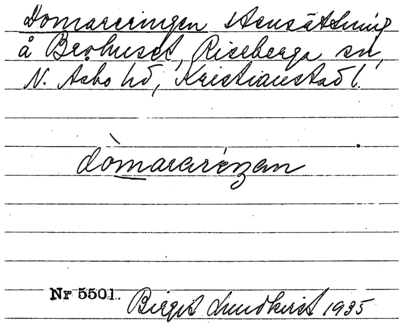 Domareringen stensättning
å Brohuset, Riseberga sn,
N. Asbo hd, Kristianstad l.
dòmararéŋen
Nr 5501. Birgit Lundkvist 1935